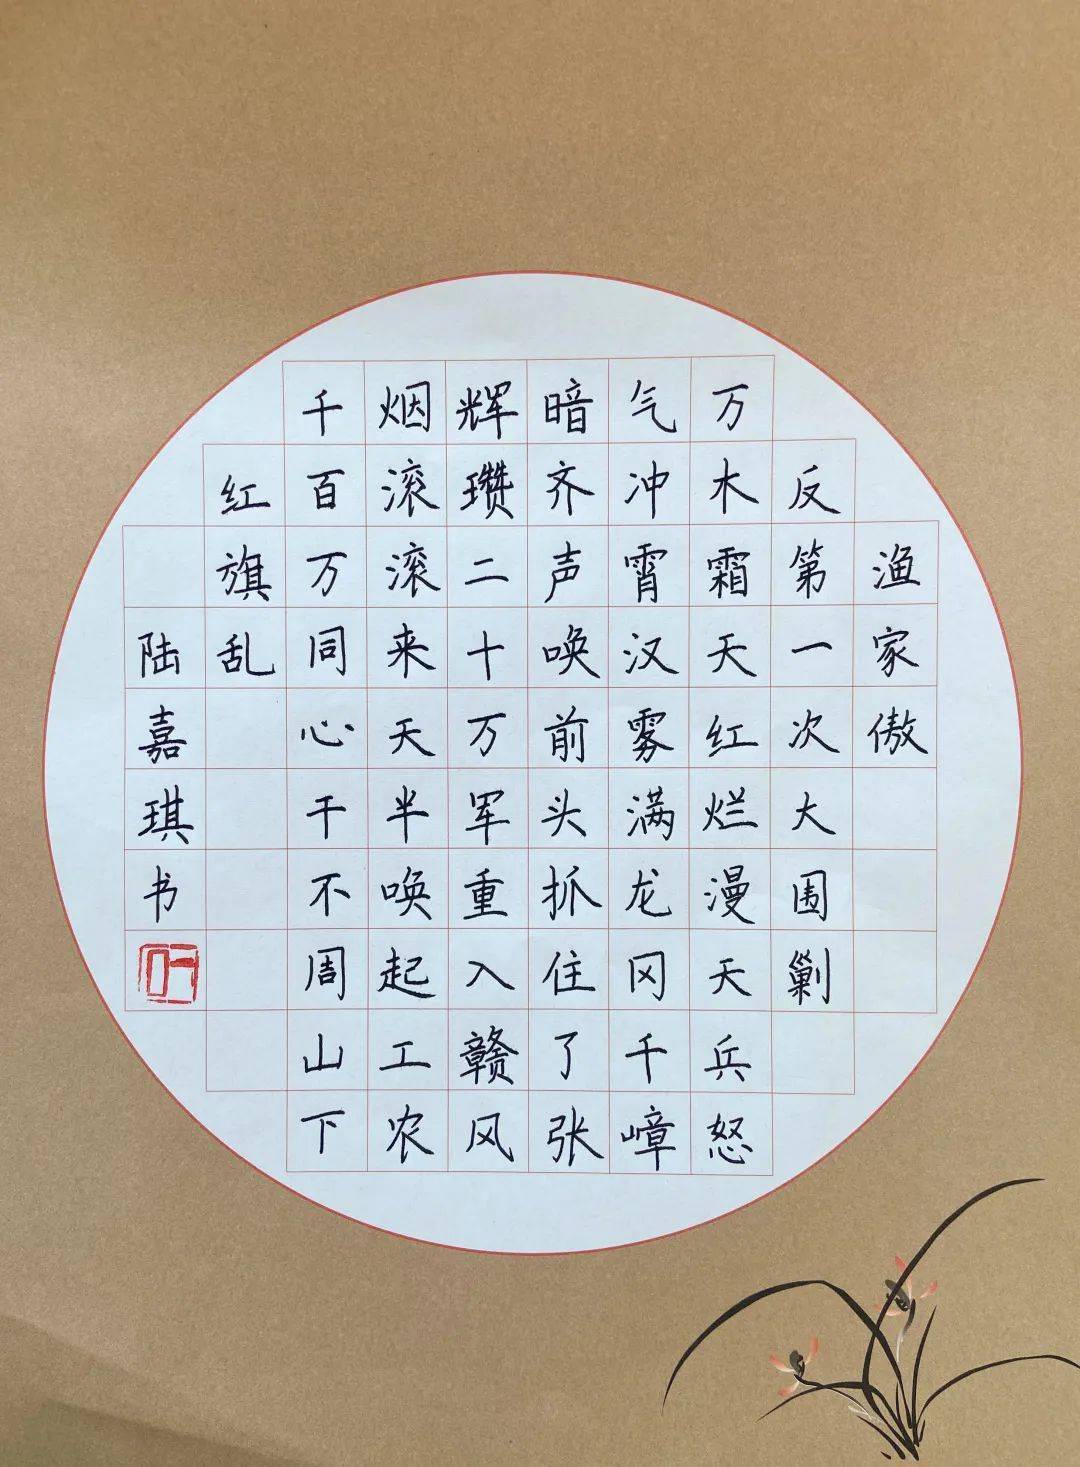 渔家傲
反第一次大围剿
万木霜天红烂漫天兵怒
气冲霄汉雾满龙冈千嶂
暗齐声唤前头抓住了张
辉瓒二十万军重入赣风
烟滚滚来天半唤起工农
千百万同心干不周山下
红旗乱
陆嘉琪书